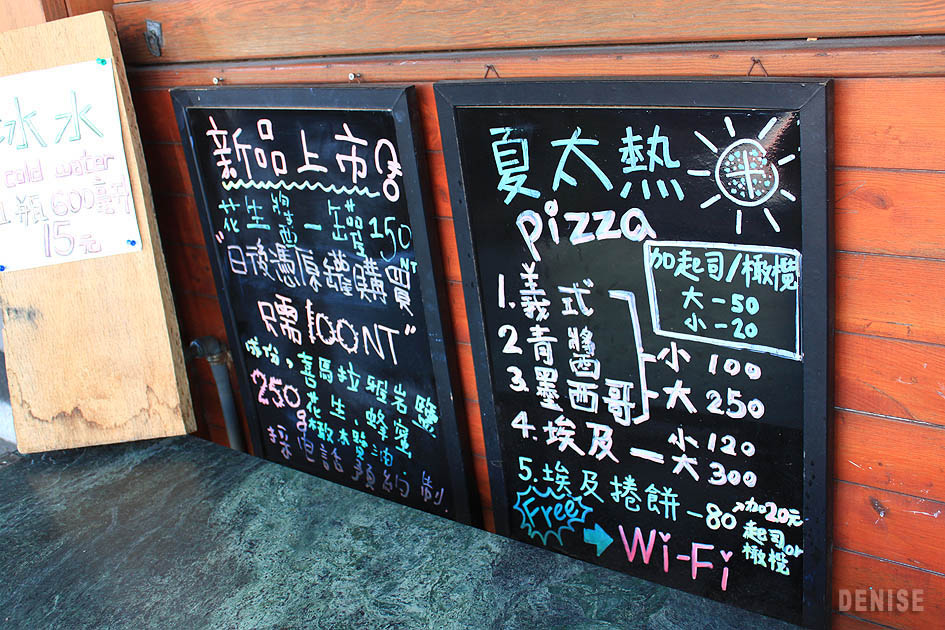 冰水
cold water
1瓶600毫升
15元
新品上市
花生醬一罐150NT
"日後憑原罐購買
只需100NT"
成份:喜馬拉雅岩鹽
250g 花生、蜂蜜
橄欖油
採電話預約制
夏太熱
pizza
加起司/橄欖
大-50
小-20
1.義式
2.青醬
3.墨西哥
小100
大250
4.埃及—小120
大300
5.埃及捲餅-80
加20元
起司or
橄欖
Free
Wi-Fi
DENISE